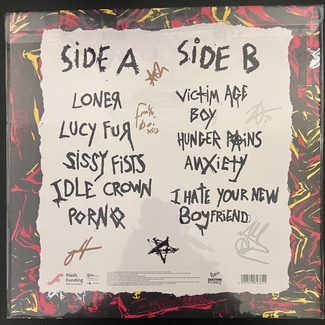 SIDE A
LONER
LUCY FUR
SISSY FISTS
IDLE CROWN
PORNO
SIDE B
VICTIM AGE
BOY
HUNGER PAINS
ANXIETY
I HATE YOUR NEW
BOYFRIEND
Flash
Funding